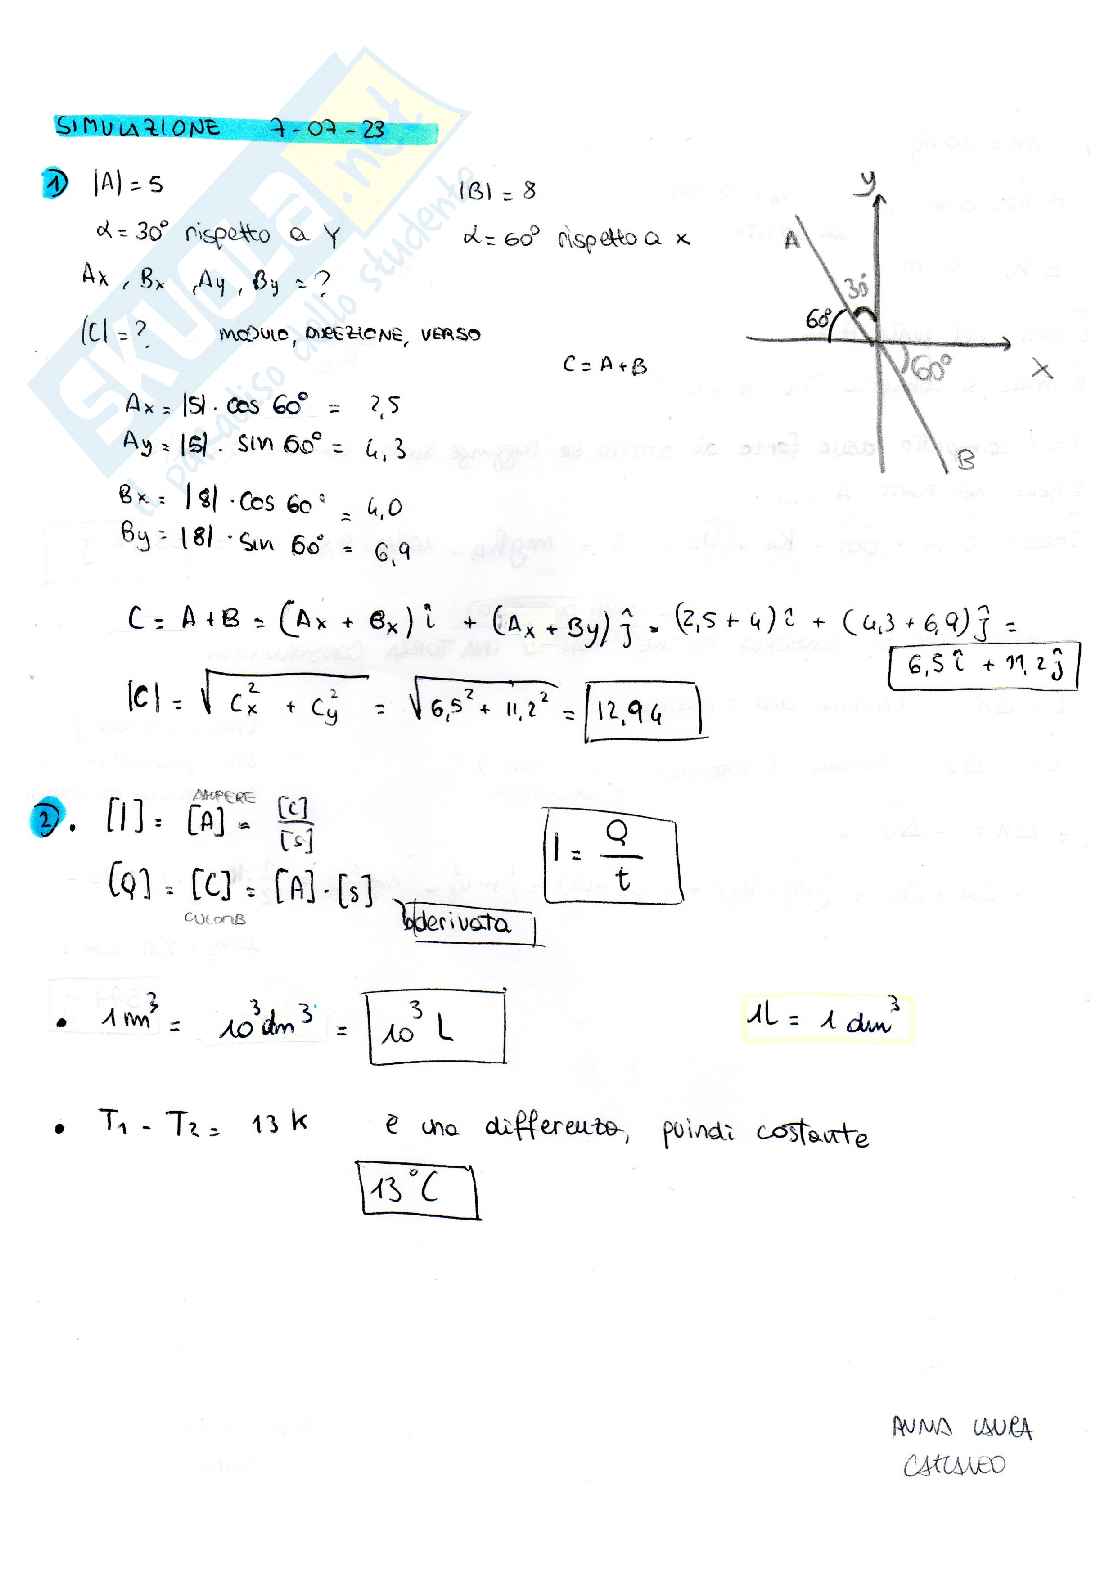 SIMULAZIONE 7-07-23
1) |A| = 5 |B| = 8
α = 30° rispetto a Y α = 60° rispetto a x
Ax, Bx, Ay, By = ?
|C| = ? MODULO, DIREZIONE, VERSO
C = A+B
y
A
30°
60°
60°
x
B
Ax = |5| · cos 60° = 2,5
Ay = |5| · sin 60° = 4,3
Bx = |8| · cos 60° = 4,0
By = |8| · sin 60° = 6,9
C = A+B = (Ax + Bx) î + (Ax + By) ĵ = (2,5 + 4) î + (4,3 + 6,9) ĵ =
6,5 î + 11,2 ĵ
|C| = √(Cx² + Cy²) = √(6,5² + 11,2²) = 12,94
2 . [I] = [A] = [C]/[s] I = Q/t
AMPERE
[Q] = [C] = [A] · [s]
CULOMB
derivata
• 1 m³ = 10³ dm³ = 10³ L 1L = 1 dm³
• T1 - T2 = 13 K è una differenza, quindi costante
13°C
ANNA LAURA
CATCANEO
SKUOLA.net
il paradiso dello studente